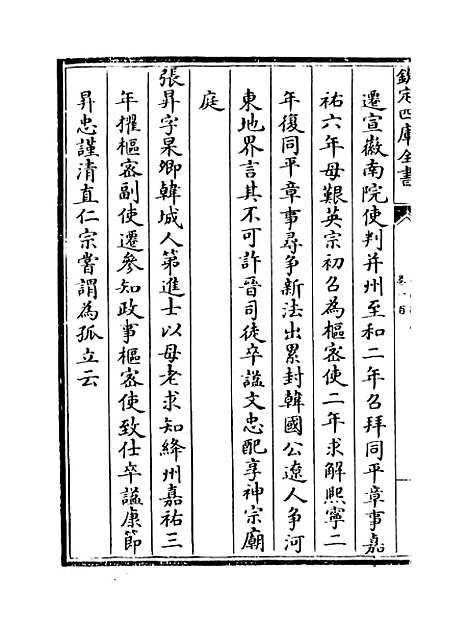 欽定四庫全書
遷宣徽南院使判并州至和二年召拜同平章事嘉
祐六年母艱英宗初召為樞宻使二年求解熙寧二
年復同平章事尋爭新法出累封韓國公遼人爭河
東地界言其不可許晉司徒卒謚文忠配享神宗廟
庭
張昇字杲卿韓城人第進士以母老求知絳州嘉祐三
年擢樞宻副使遷參知政事樞宻使致仕卒謚康節
昇忠謹清直仁宗嘗謂為孤立云